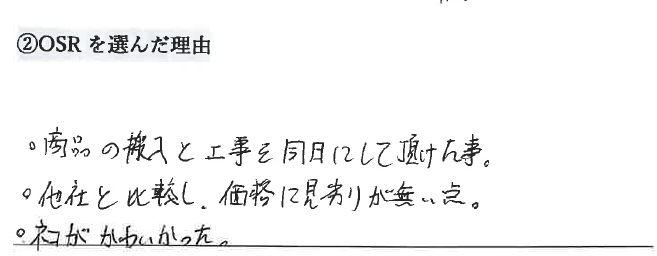 ②OSRを選んだ理由
。商品の搬入と工事を同日にして頂けた事。
。他社と比較し、価格に見劣りが無い点。
。ネコがかわいかった。